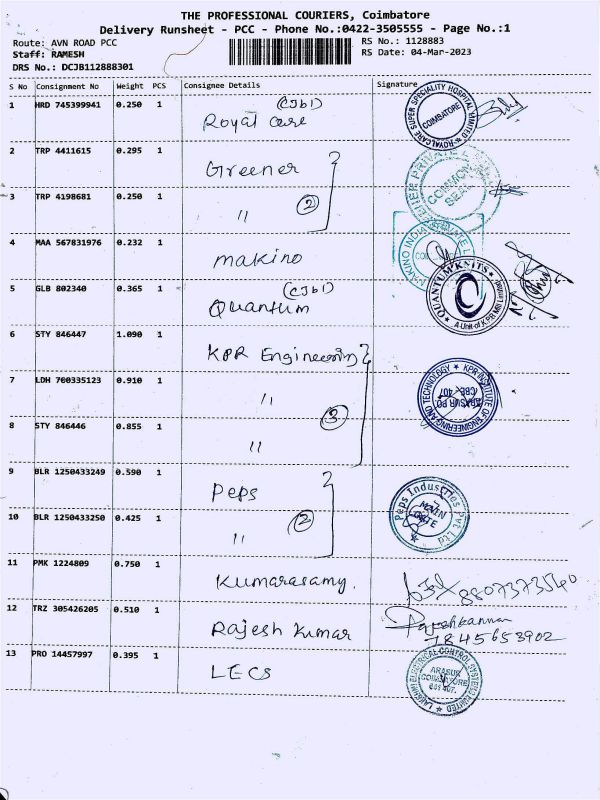 THE PROFESSIONAL COURIERS, Coimbatore
Delivery Runsheet - PCC - Phone No.:0422-3505555 - Page No.:1
Route: AVN ROAD PCC
RS No.: 1128883
Staff: RAMESH
RS Date: 04-Mar-2023
DRS No.: DCJB112888301
S No Consignment No Weight PCS Consignee Details Signature
1 HRD 745399941 0.250 1 Royal Care (CJb1)
ROYAL CARE SUPER SPECIALITY HOSPITAL LIMITED
COIMBATORE
2 TRP 4411615 0.295 1 Greener
PRIVATE
COMMON SEAL
3 TRP 4198681 0.250 1 " 2
4 MAA 567831976 0.232 1 makino
MAKINO INDIA PRIVATE
5 GLB 802340 0.365 1 Quantum (CJb1)
QUANTUM KNITS
A Unit of K.P.R Mill Limited
6 STY 846447 1.090 1 KPR Engineering
7 LDH 700335123 0.910 1 " 3
KPR INSTITUTE OF ENGINEERING AND TECHNOLOGY
ARASUR PO
CBE 407
8 STY 846446 0.855 1 "
9 BLR 1250433249 0.590 1 Peps
Peps Industries Pvt Ltd
10 BLR 1250433250 0.425 1 " 2
MAIN GATE
11 PMK 1224809 0.750 1 Kumarasamy.
8807373540
12 TRZ 305426205 0.510 1 Rajesh Kumar
Rajeshkannan
7845653902
13 PRO 14457997 0.395 1 LECS
LAKSHMI ELECTRICAL CONTROL SYSTEMS LIMITED
ARASUR
COIMBATORE
641 407.